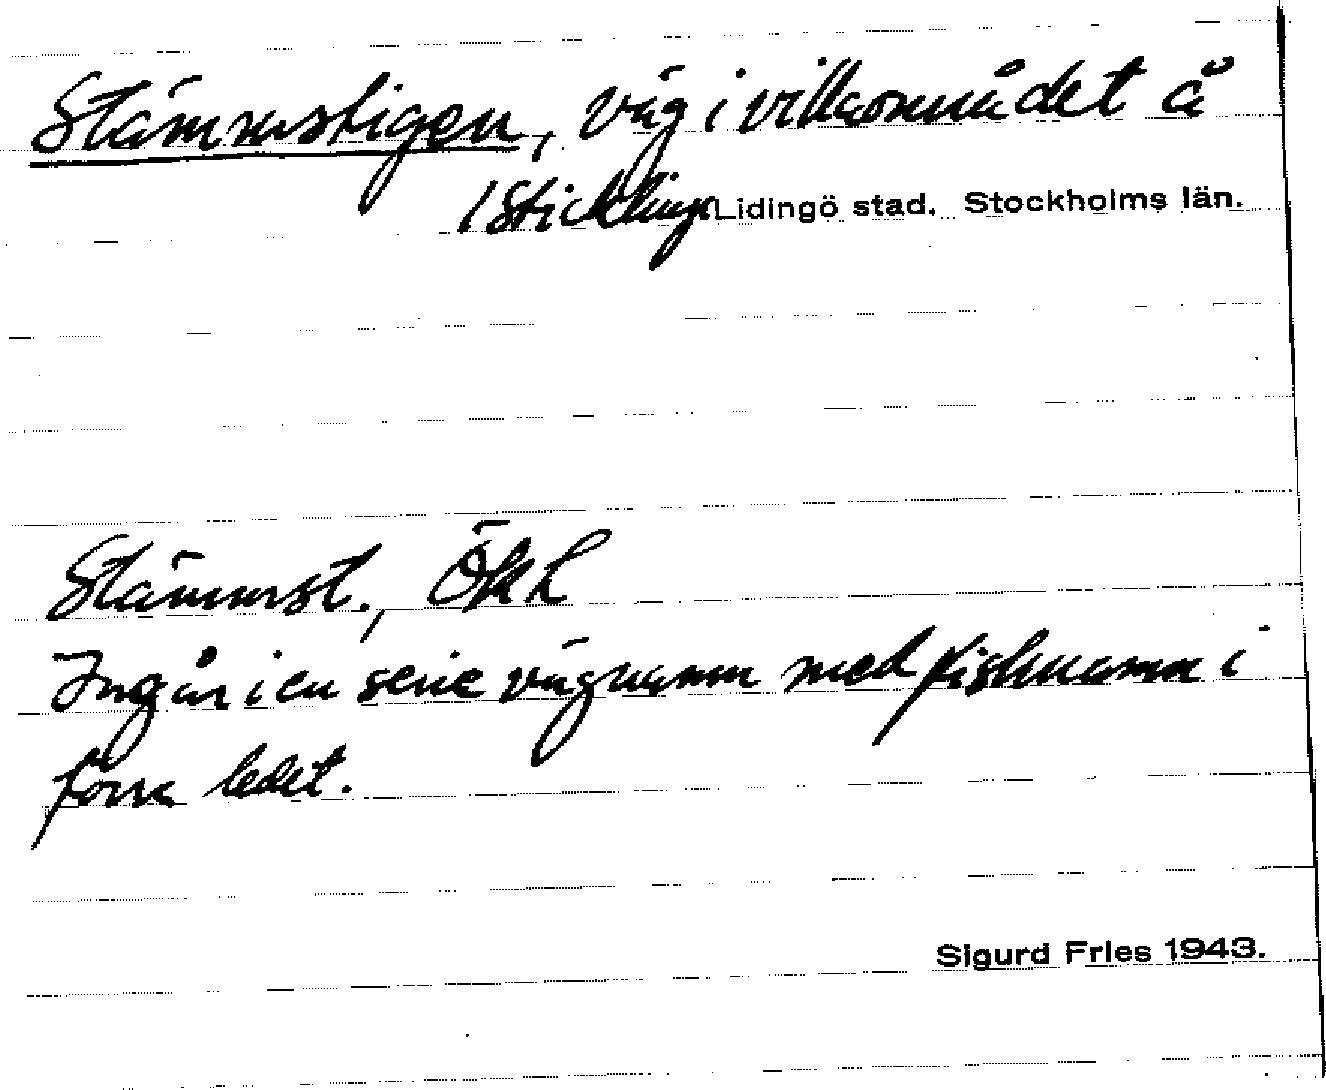 Stämmstigen, väg i villaområdet å
/Sticklinge Lidingö stad. Stockholms län.
Stämmst., ÖkL
Ingår i en serie vägnamn med fisknamn i
förra ledet.
Sigurd Fries 1943.